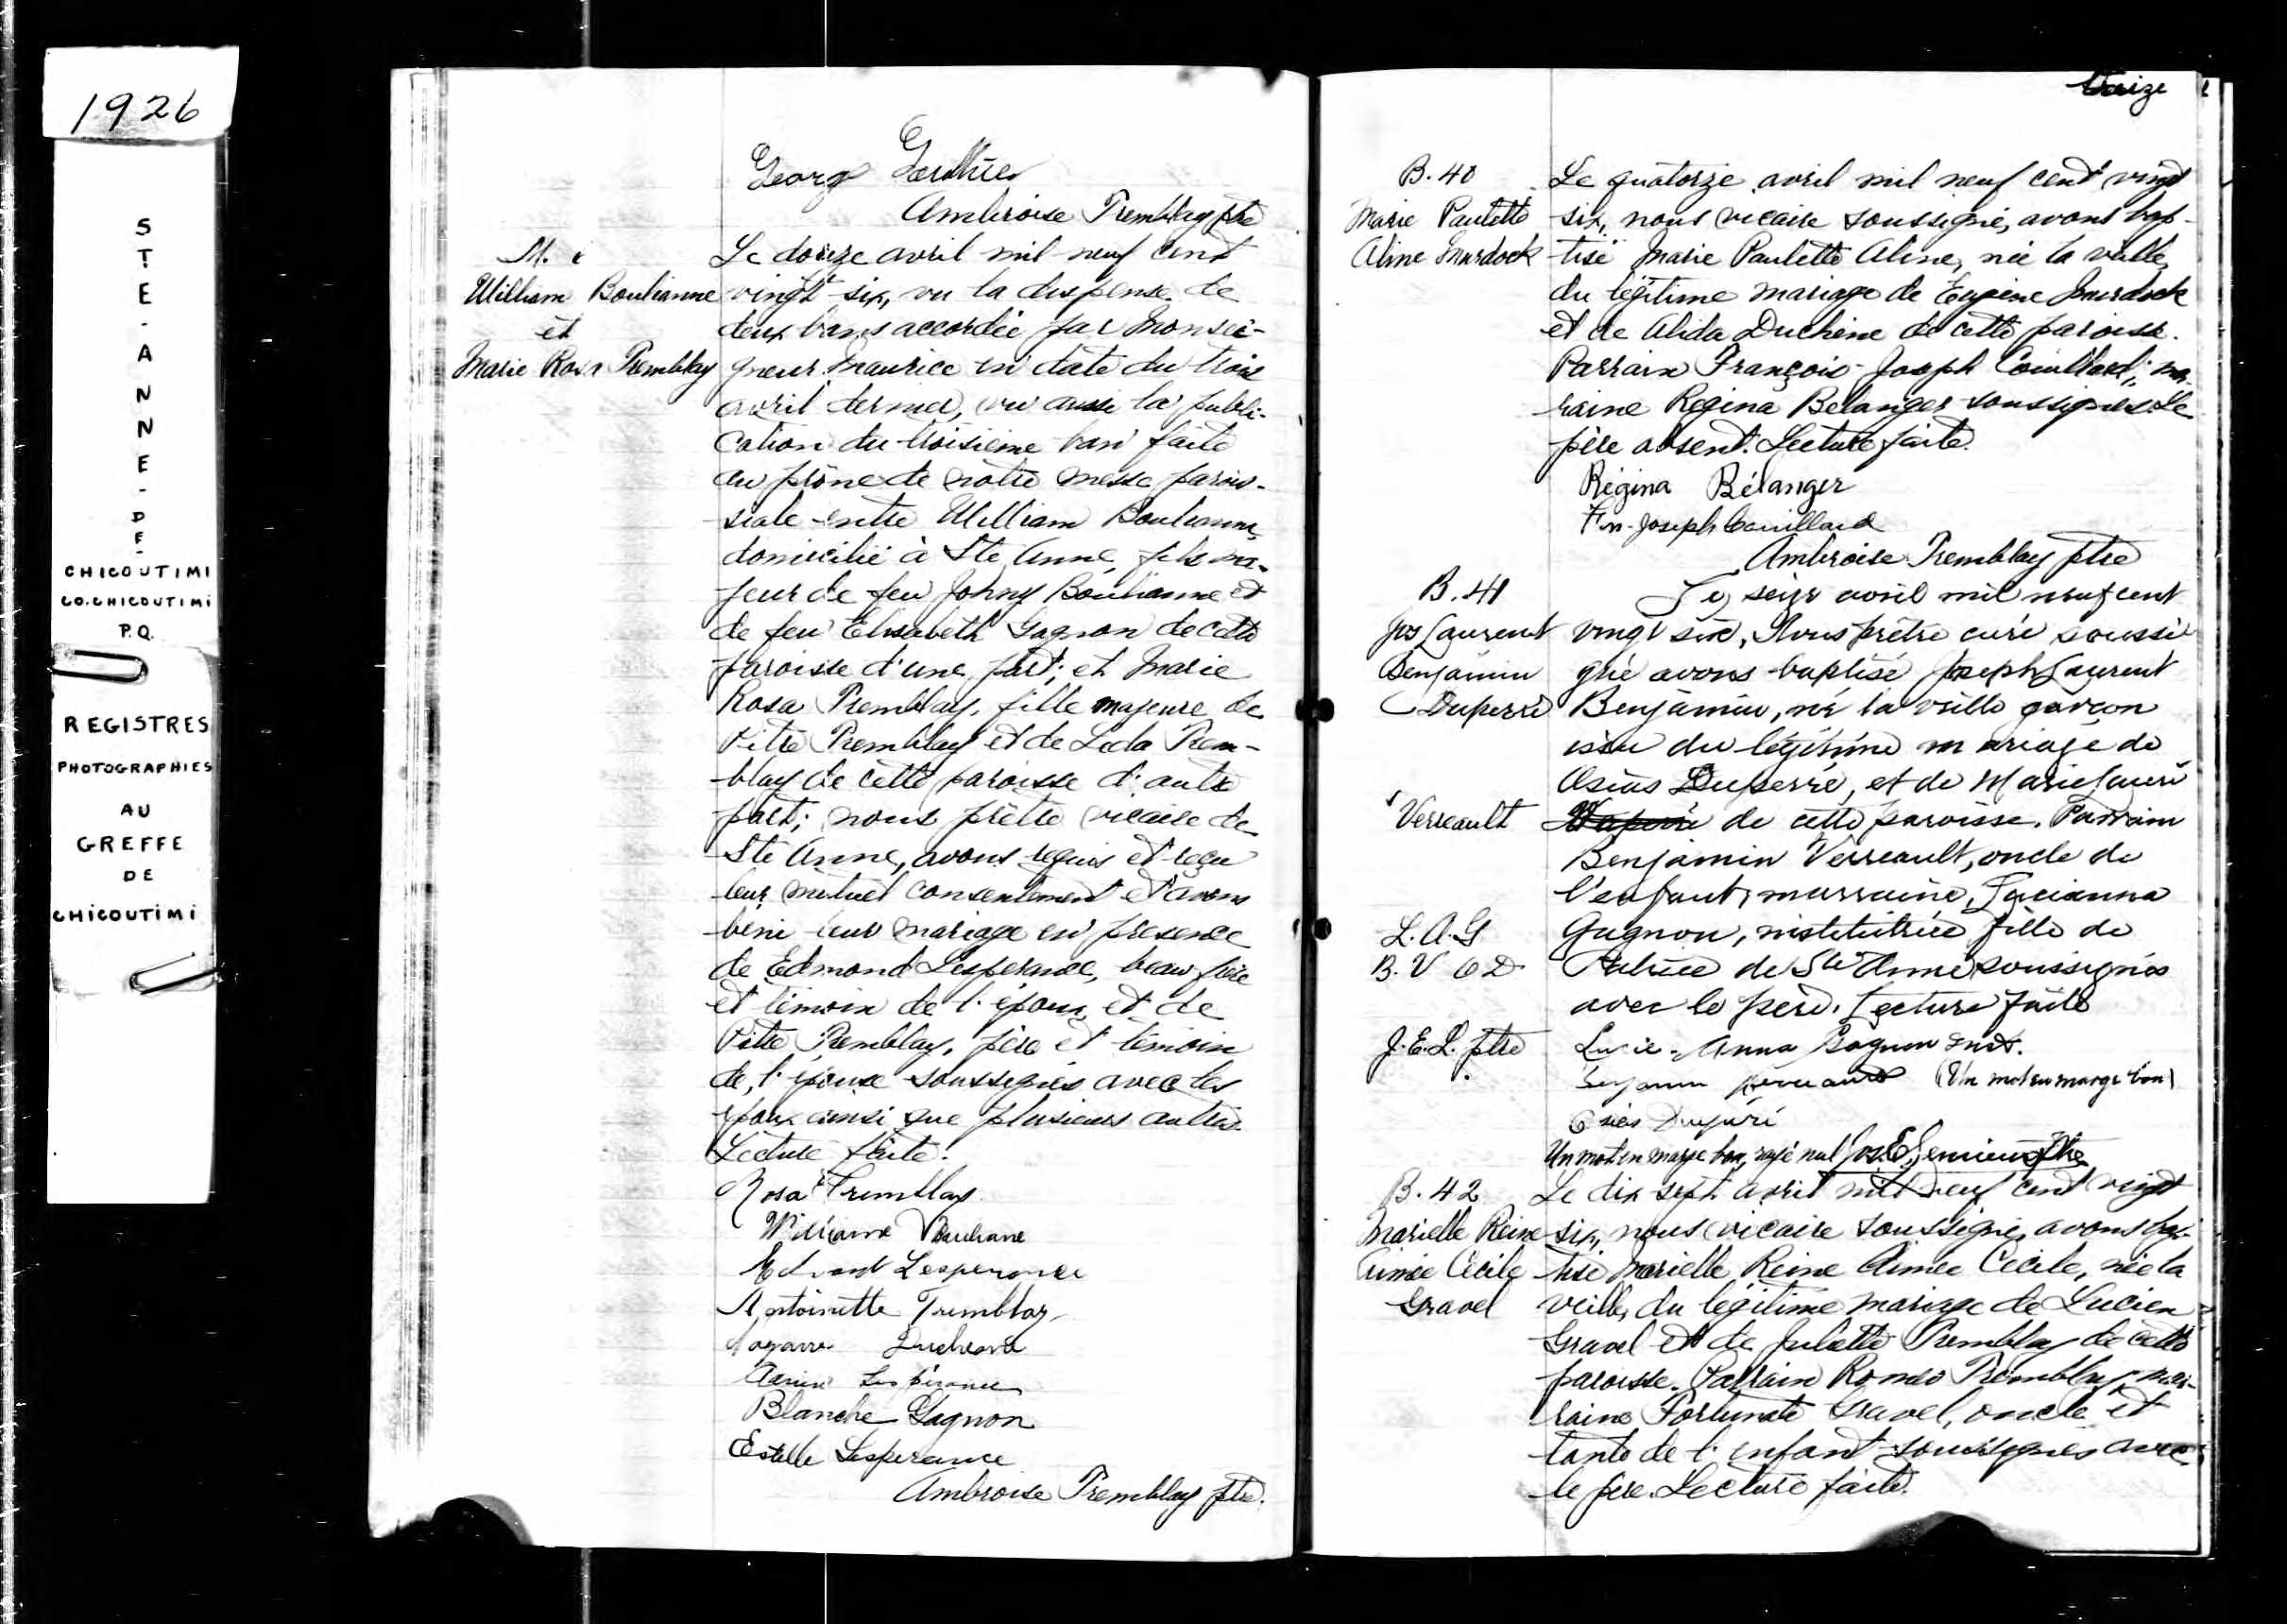 1926
STE-ANNE-DE-
CHICOUTIMI
CO. CHICOUTIMI
P.Q.
REGISTRES
PHOTOGRAPHIES
AU
GREFFE
DE
CHICOUTIMI
Georg
Ambroise Tremblay ptre
M.
William Boulianne
et
Marie Rosa Tremblay
Le douze avril mil neuf cent
vingt-six, vu la dispense de
deux bans accordée par Monsei-
gneur Maurice en date du trois
avril dernier, vu aussi la publi-
cation du troisième ban faite
au prône de notre messe parois-
siale entre William Boulianne
domicilié à Ste Anne, fils ma-
jeur de feu Johny Boulianne et
de feu Elisabeth Gagnon de cette
paroisse d'une part; et Marie
Rosa Tremblay, fille majeure de
Vitre Tremblay et de Leda Trem-
blay de cette paroisse d'autre
part; nous prêtre vicaire de
Ste Anne, avons requis et reçu
leur mutuel consentement et avons
béni leur mariage en présence
de Edmond Lesperance, beau-frère
et témoin de l'époux, et de
Vitre Tremblay, père et témoin
de l'épouse soussignés avec les
époux ainsi que plusieurs autres.
Lecture faite.
Rosa Tremblay
William
Lesperance
Antoinette Tremblay
Duchesne
Blanche Gagnon
Estelle Lesperance
Ambroise Tremblay ptre.
treize
B. 40
Marie Paulette
Aline Murdock
Le quatorze avril mil neuf cent vingt
six, nous vicaire soussigné, avons bap-
tisé Marie Paulette Aline, née la veille,
du légitime mariage de Eugène Murdock
et de Alida Duchêne de cette paroisse.
Parrain François-Joseph Couillard; mar-
raine Régina Bélanger soussignés. Le
père absent. Lecture faite.
Régina Bélanger
Frs-Joseph Couillard
Ambroise Tremblay ptre
B. 41
Jos Laurent
Benjamin
Duperré
Le seize avril mil neuf cent
vingt six, Nous prêtre curé soussi
gné avons baptisé Joseph Laurent
Benjamin, né la veille garçon
issu du légitime mariage de
Osias Duperré, et de Marie
Verreault
de cette paroisse. Parrain
Benjamin Verreault, oncle de
l'enfant, marraine, Lucianna
L. A. G
B. V O D
Gagnon, institutrice fille de
de Ste Anne soussignés
avec le père. Lecture faite
J. E. L. ptre
Lucie-Anna Gagnon inst.
Benjamin (Un mot en marge bon)
Osias
Un mot en marge bon, rayé nul Jos. E. Lemieux ptre
B. 42
Marielle Reine
Aimée Cécile
Gravel
Le dix sept avril mil neuf cent vingt
six, nous vicaire soussigné, avons bap-
tisé Marielle Reine Aimée Cécile, née la
veille, du légitime mariage de Lucien
Gravel et de Juliette Tremblay de cette
paroisse. Parrain Roméo Tremblay, mar-
raine Fortunate Gravel, oncle et
tante de l'enfant soussignés avec
le père. Lecture faite.